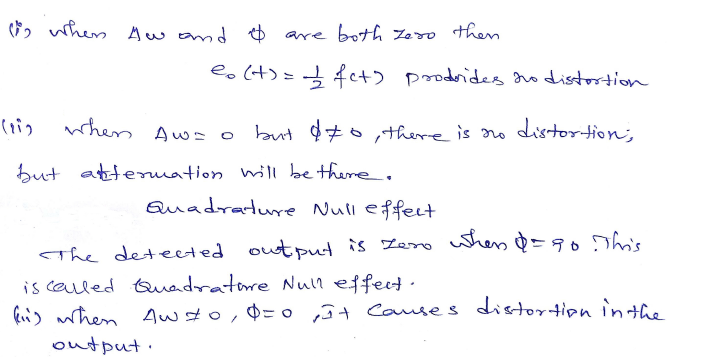 (i) when Δω and φ are both zero then
e₀(t) = 1/2 f(t) prodvides no distortion
(ii) when Δω = 0 but φ ≠ 0, there is no distortion;
but attenuation will be there.
Quadrature Null effect
The detected output is zero when φ = 90°. This
is called Quadrature Null effect.
(iii) when Δω ≠ 0, φ = 0, It causes distortion in the
output.